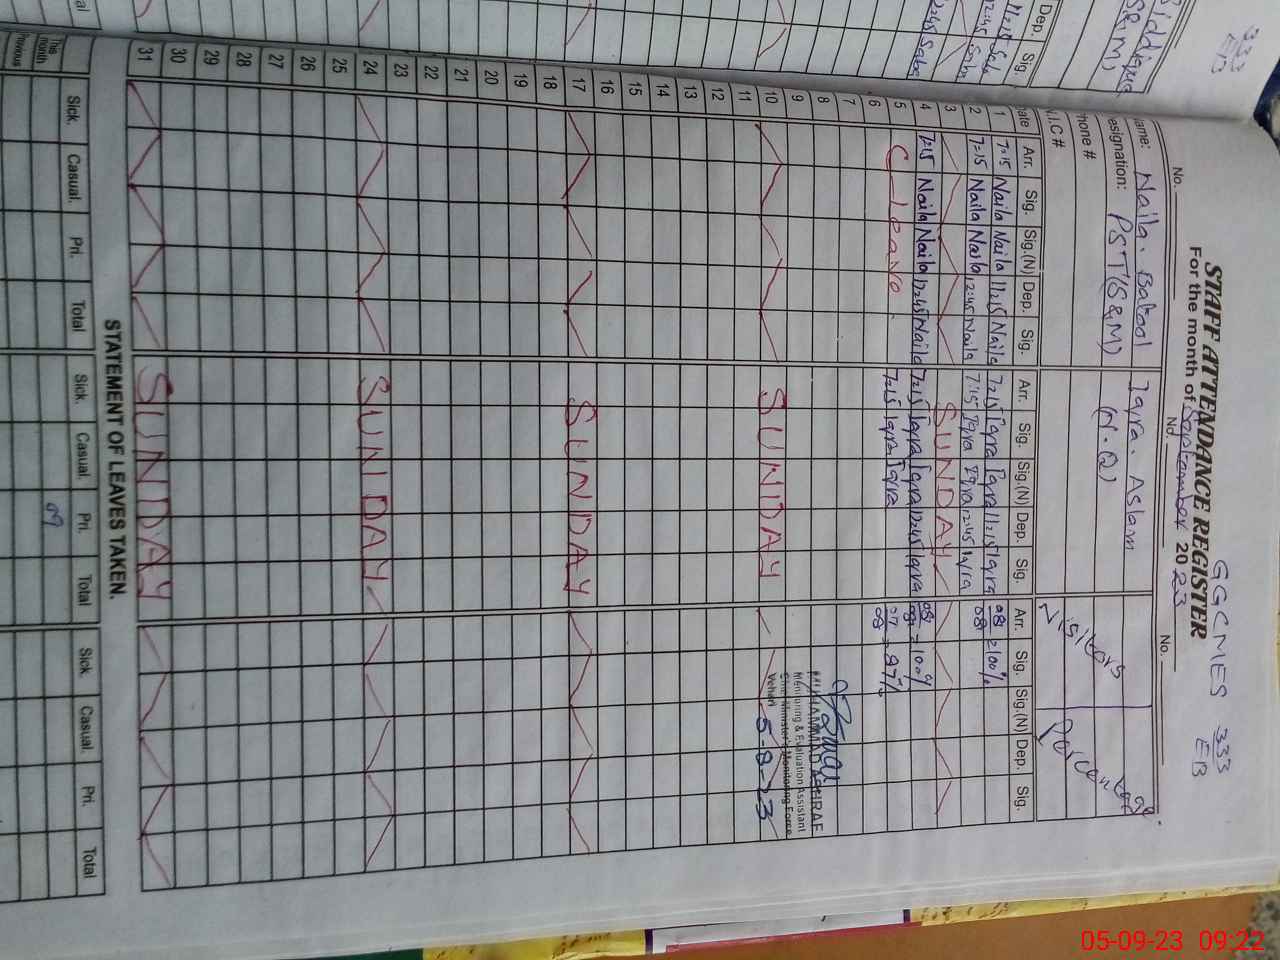 GGCMES 333
EB
STAFF ATTENDANCE REGISTER
For the month of September 2023
No. Nd No.
Name: Naila. Batool Iqra. Aslam
Designation: PST(S&M) (N.Q)
Phone # Visitors Percentage.
N.I.C #
Date Arr. Sig. Sig.(N) Dep. Sig. Arr. Sig. Sig.(N) Dep. Sig. Arr. Sig. Sig.(N) Dep. Sig.
1 7:15 Naila Naila 11:15 Naila 7:15 Iqra Iqra 11:15 Iqra 081/081 =100%
2 7:15 Naila Naila 12:45 Naila 7:15 Iqra Iqra 12:45 Iqra
3 SUNDAY
4 7:15 Naila Naila 12:45 Naila 7:15 Iqra Iqra 12:45 Iqra =100%
5 C-leave. 7:15 Iqra Iqra = 87%
6
7
8
9 MUHAMMAD ASHRAF
Monitoring & Evaluation Assistant
Chief Minister's Monitoring Force
10 SUNDAY Vehari 5-8-23
11
12
13
14
15
16
17 SUNDAY
18
19
20
21
22
23
24 SUNDAY
25
26
27
28
29
30
31 SUNDAY
STATEMENT OF LEAVES TAKEN.
Sick. Casual. Pri. Total Sick. Casual. Pri. Total Sick. Casual. Pri. Total
This month 09
Previous
333
EB
Siddiqua
Dep. Sig.
12:45 Saba
12:45 Saba
05-09-23 09:22